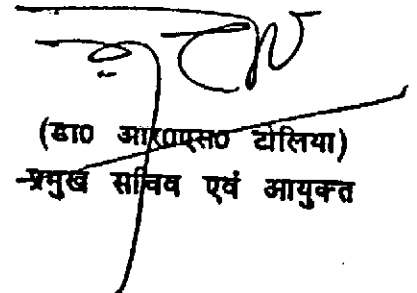 (डा० आर०एस० टोलिया)
प्रमुख सचिव एवं आयुक्त